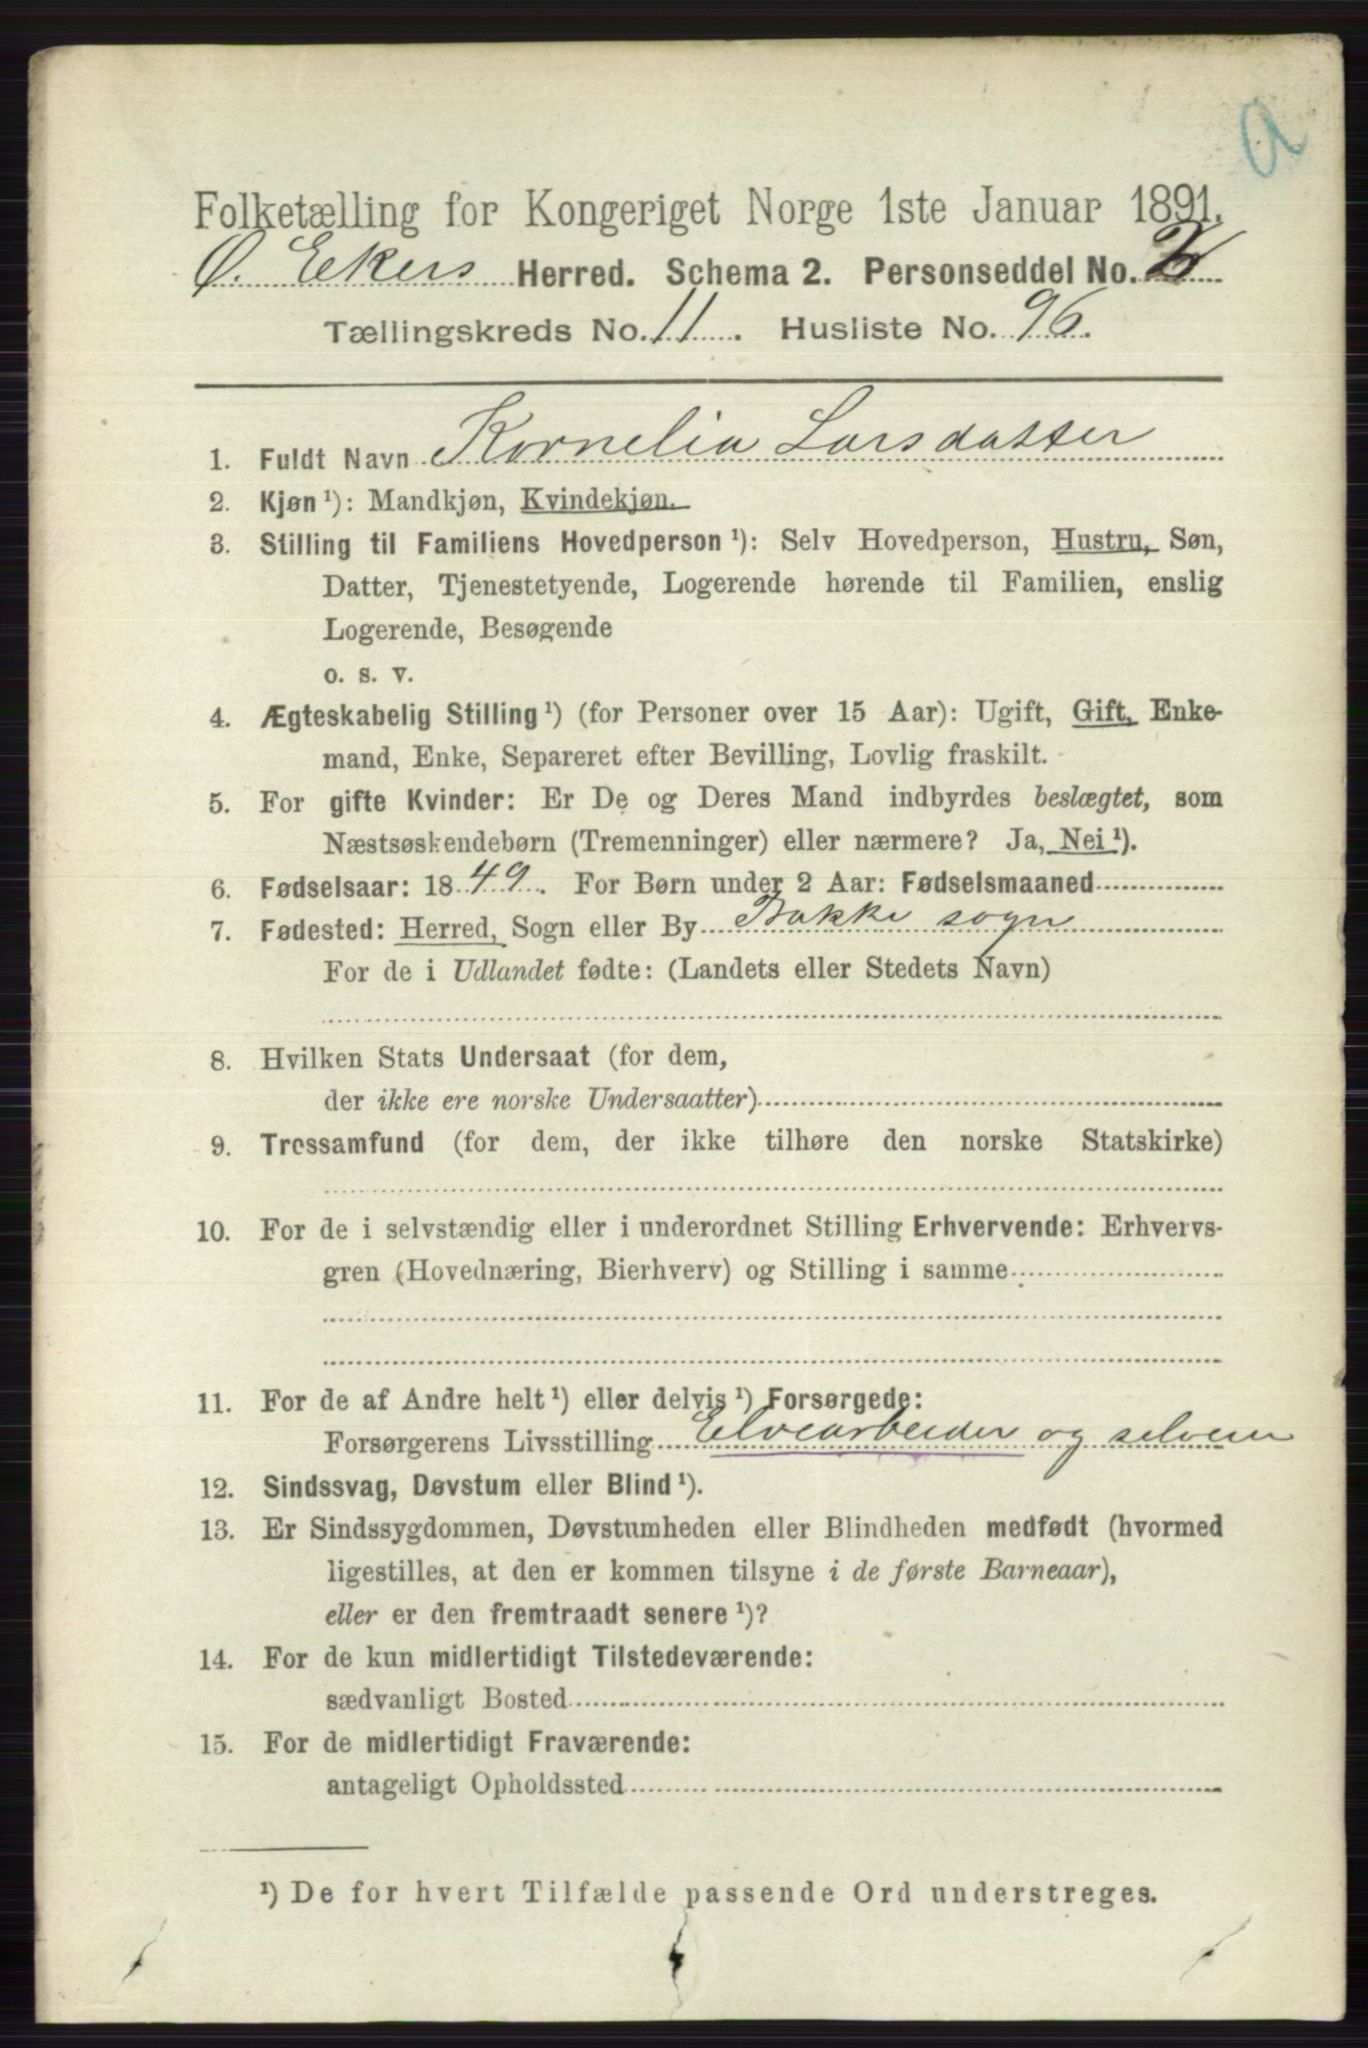 Folketælling for Kongeriget Norge 1ste Januar 1891.
Ø. Ekers Herred. Schema 2. Personseddel No. 2
Tællingskreds No. 11. Husliste No. 96.
1. Fuldt Navn Kornelia Larsdatter
2. Kjøn ¹): Mandkjøn, Kvindekjøn.
3. Stilling til Familiens Hovedperson ¹): Selv Hovedperson, Hustru, Søn,
Datter, Tjenestetyende, Logerende hørende til Familien, enslig
Logerende, Besøgende
o. s. v.
4. Ægteskabelig Stilling ¹) (for Personer over 15 Aar): Ugift, Gift, Enke-
mand, Enke, Separeret efter Bevilling, Lovlig fraskilt.
5. For gifte Kvinder: Er De og Deres Mand indbyrdes beslægtet, som
Næstsøskendebørn (Tremenninger) eller nærmere? Ja, Nei ¹).
6. Fødselsaar: 1849. For Børn under 2 Aar: Fødselsmaaned
7. Fødested: Herred, Sogn eller By Bakke sogn
For de i Udlandet fødte: (Landets eller Stedets Navn)
8. Hvilken Stats Undersaat (for dem,
der ikke ere norske Undersaatter)
9. Trossamfund (for dem, der ikke tilhøre den norske Statskirke)
10. For de i selvstændig eller i underordnet Stilling Erhvervende: Erhvervs-
gren (Hovednæring, Bierhverv) og Stilling i samme
11. For de af Andre helt ¹) eller delvis ¹) Forsørgede:
Forsørgerens Livsstilling Elvearbeider og selveier
12. Sindssvag, Døvstum eller Blind ¹).
13. Er Sindssygdommen, Døvstumheden eller Blindheden medfødt (hvormed
ligestilles, at den er kommen tilsyne i de første Barneaar),
eller er den fremtraadt senere ¹)?
14. For de kun midlertidigt Tilstedeværende:
sædvanligt Bosted
15. For de midlertidigt Fraværende:
antageligt Opholdssted
¹) De for hvert Tilfælde passende Ord understreges.